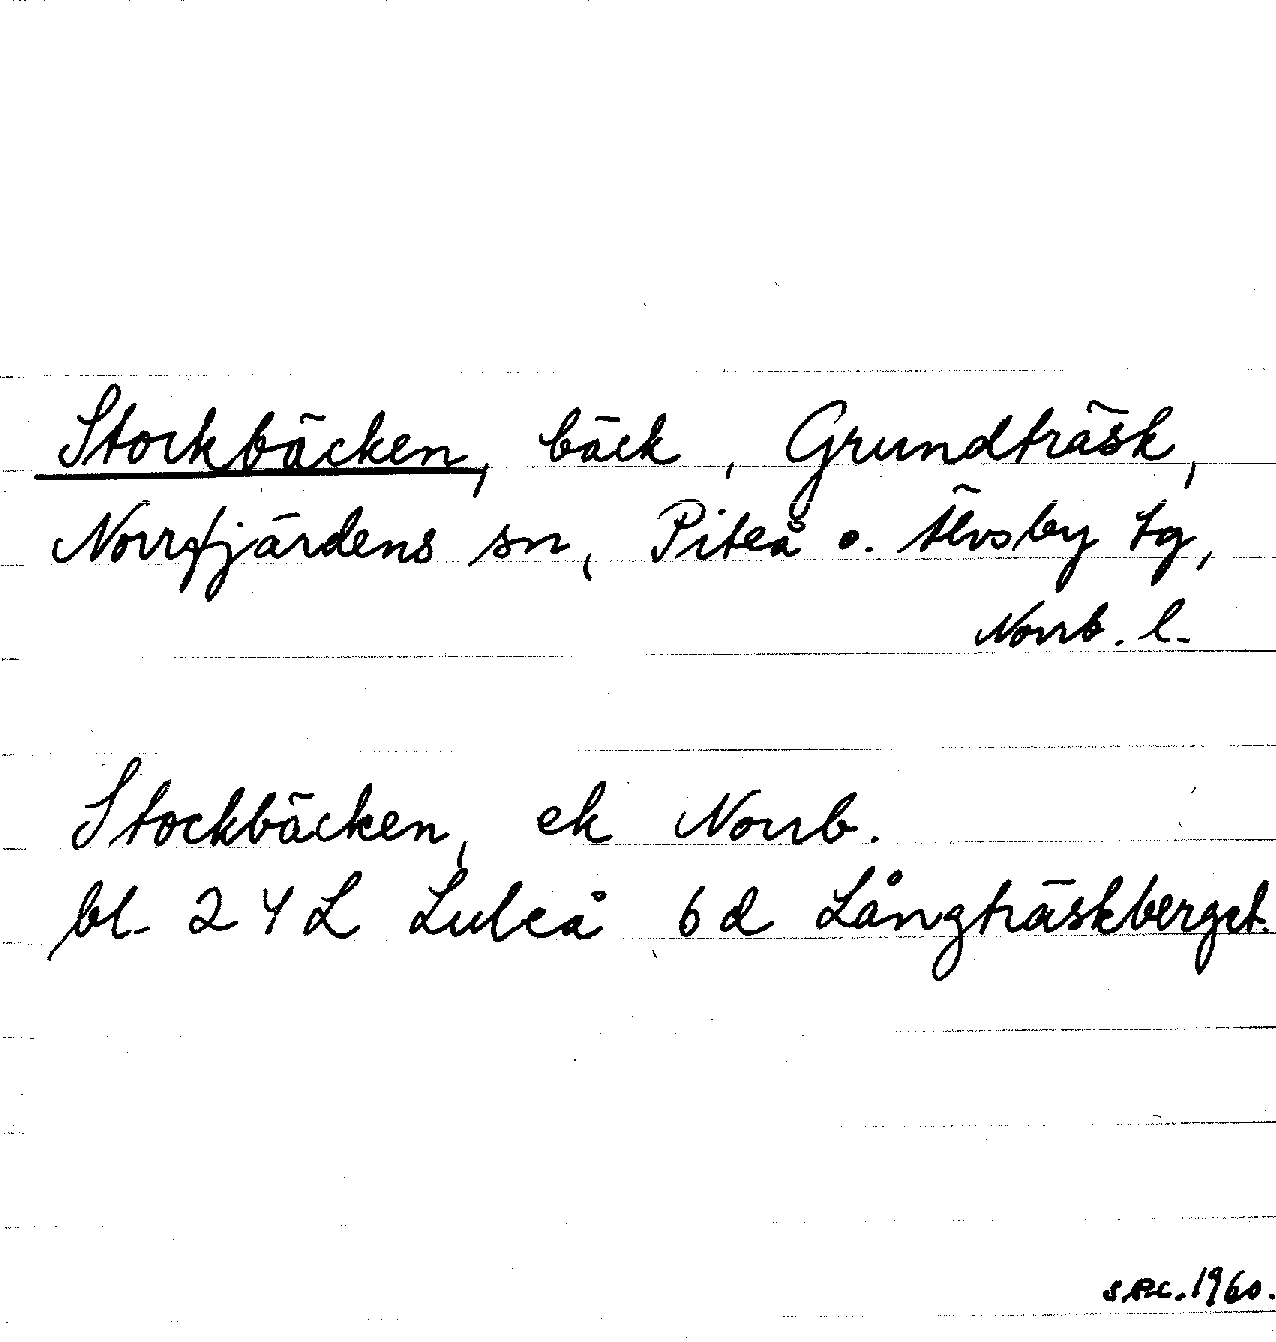 Stockbäcken, bäck, Grundträsk,
Norrfjärdens sn, Piteå o. Älvsby tg,
Norrb. l.
Stockbäcken, ek Norrb.
bl. 24L Luleå 6d Långträskberget.
1960.